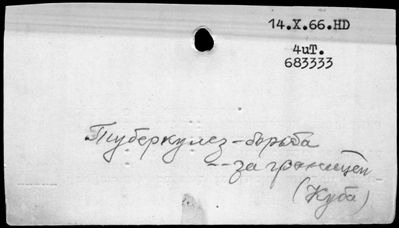 14.X.66.HD
4uT.
683333
Туберкулез - борьба
-- за границей
(Куба)